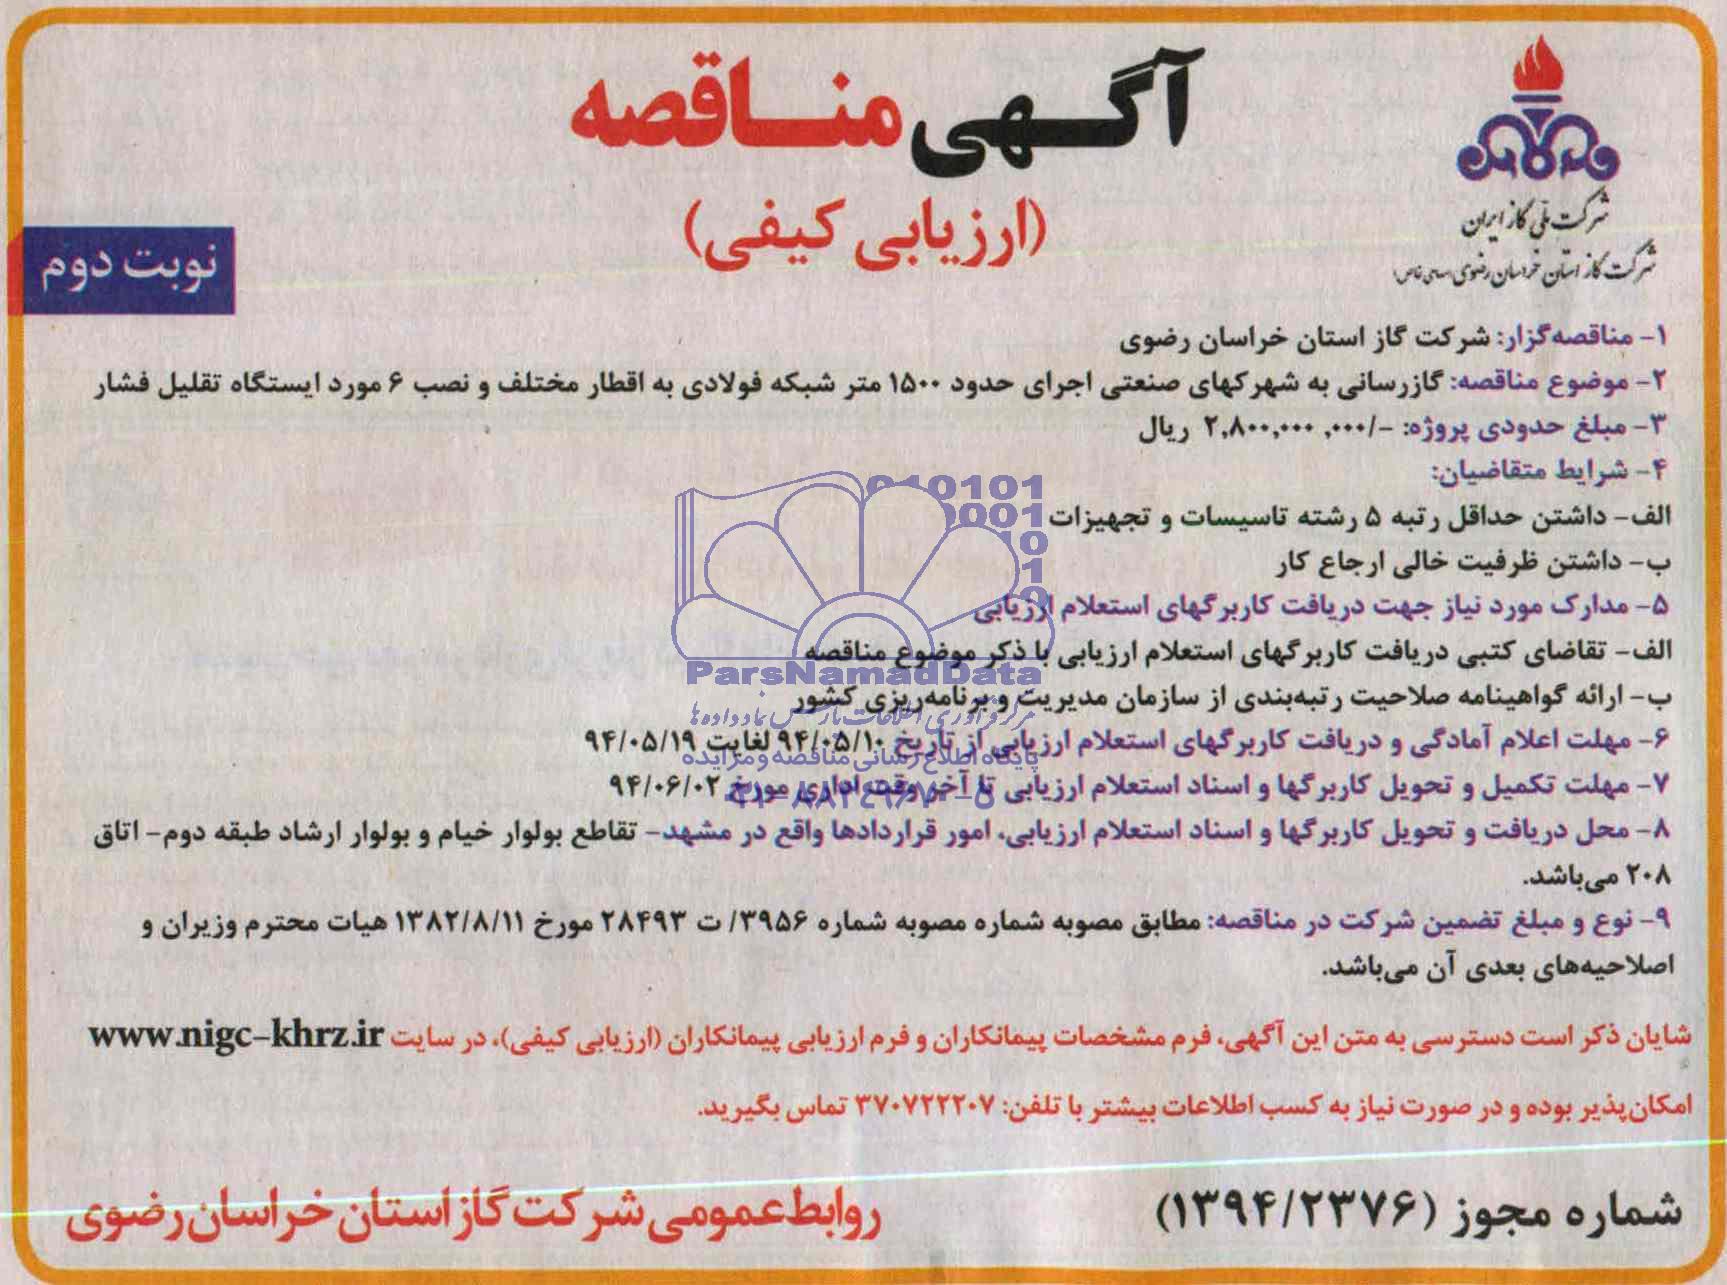 آگهی مناقصه
(ارزیابی کیفی)
شرکت ملی گاز ایران
شرکت گاز استان خراسان رضوی (سهامی خاص)
نوبت دوم
۱- مناقصه‌گزار: شرکت گاز استان خراسان رضوی
۲- موضوع مناقصه: گازرسانی به شهرکهای صنعتی اجرای حدود ۱۵۰۰ متر شبکه فولادی به اقطار مختلف و نصب ۶ مورد ایستگاه تقلیل فشار
۳- مبلغ حدودی پروژه: -/۲,۸۰۰,۰۰۰,۰۰۰ ریال
۴- شرایط متقاضیان:
الف- داشتن حداقل رتبه ۵ رشته تاسیسات و تجهیزات
ب- داشتن ظرفیت خالی ارجاع کار
۵- مدارک مورد نیاز جهت دریافت کاربرگهای استعلام ارزیابی
الف- تقاضای کتبی دریافت کاربرگهای استعلام ارزیابی با ذکر موضوع مناقصه
ب- ارائه گواهینامه صلاحیت رتبه‌بندی از سازمان مدیریت و برنامه‌ریزی کشور
۶- مهلت اعلام آمادگی و دریافت کاربرگهای استعلام ارزیابی از تاریخ ۹۴/۰۵/۱۰ لغایت ۹۴/۰۵/۱۹
۷- مهلت تکمیل و تحویل کاربرگها و اسناد استعلام ارزیابی تا آخر وقت اداری مورخ ۹۴/۰۶/۰۲
۸- محل دریافت و تحویل کاربرگها و اسناد استعلام ارزیابی، امور قراردادها واقع در مشهد- تقاطع بولوار خیام و بولوار ارشاد طبقه دوم- اتاق
۲۰۸ می‌باشد.
۹- نوع و مبلغ تضمین شرکت در مناقصه: مطابق مصوبه شماره مصوبه شماره ۳۹۵۶/ ت ۲۸۴۹۳ مورخ ۱۳۸۲/۸/۱۱ هیات محترم وزیران و
اصلاحیه‌های بعدی آن می‌باشد.
شایان ذکر است دسترسی به متن این آگهی، فرم مشخصات پیمانکاران و فرم ارزیابی پیمانکاران (ارزیابی کیفی)، در سایت www.nigc-khrz.ir
امکان‌پذیر بوده و در صورت نیاز به کسب اطلاعات بیشتر با تلفن: ۳۷۰۷۲۲۲۰۷ تماس بگیرید.
شماره مجوز (۱۳۹۴/۲۳۷۶)
روابط عمومی شرکت گاز استان خراسان رضوی
ParsNamadData
مرکز فرآوری اطلاعات پارس نماد داده‌ها
پایگاه اطلاع رسانی مناقصه و مزایده